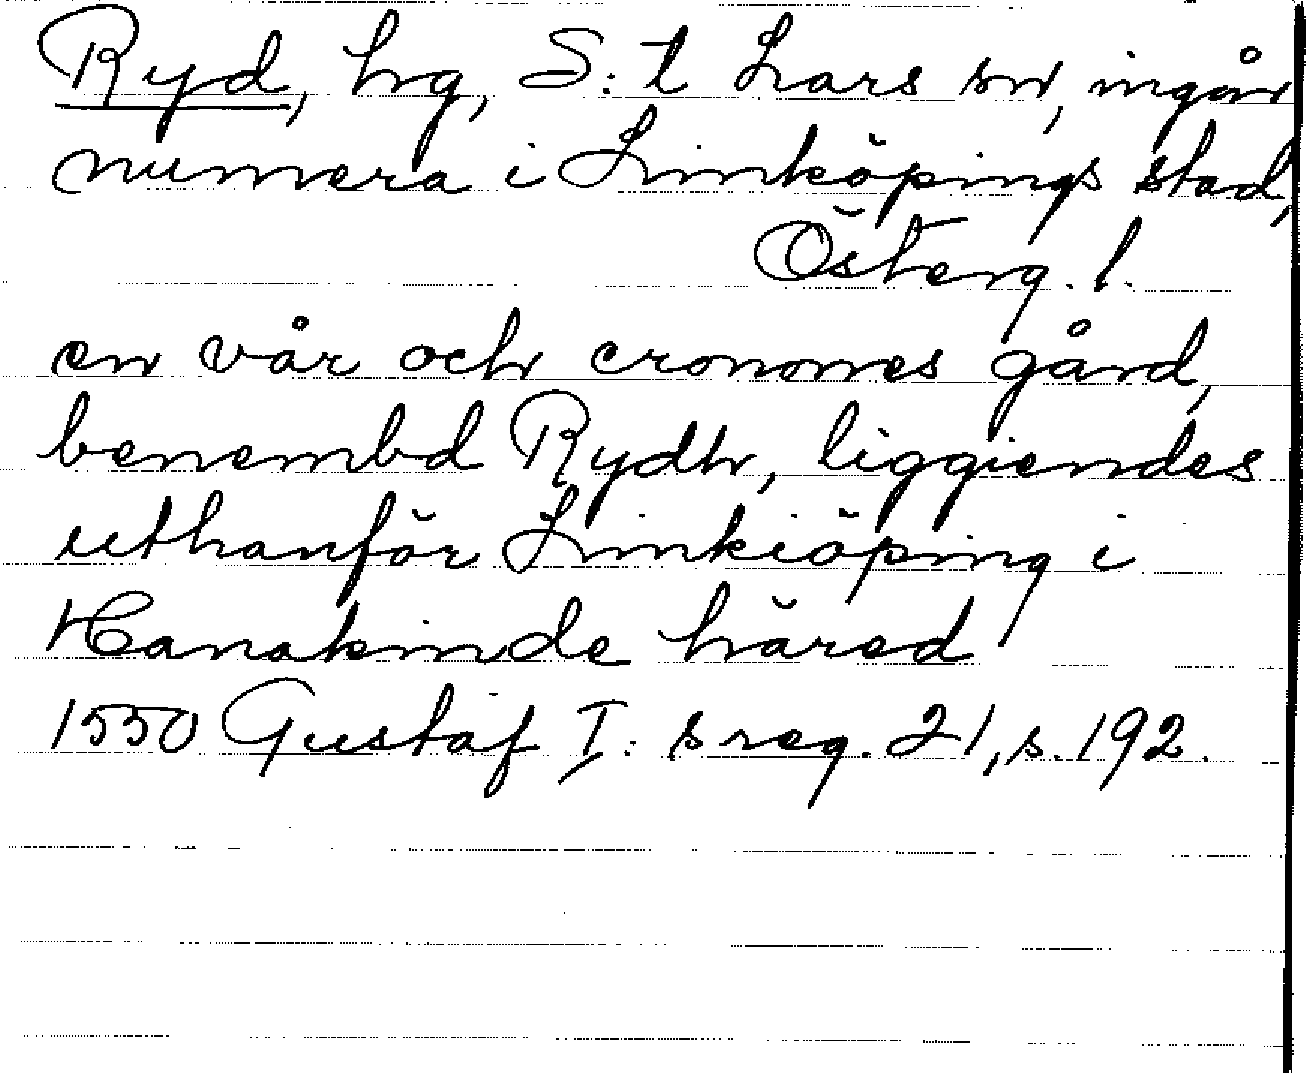 Ryd, hg, S:t Lars sn, ingår
numera i Linköpings stad,
Österg. l.
en vår och cronones gård,
benembd Rydh, liggiendes
uthanför Linkiöping i
Hanakinde häred
1550 Gustaf I:s reg. 21, s. 192.